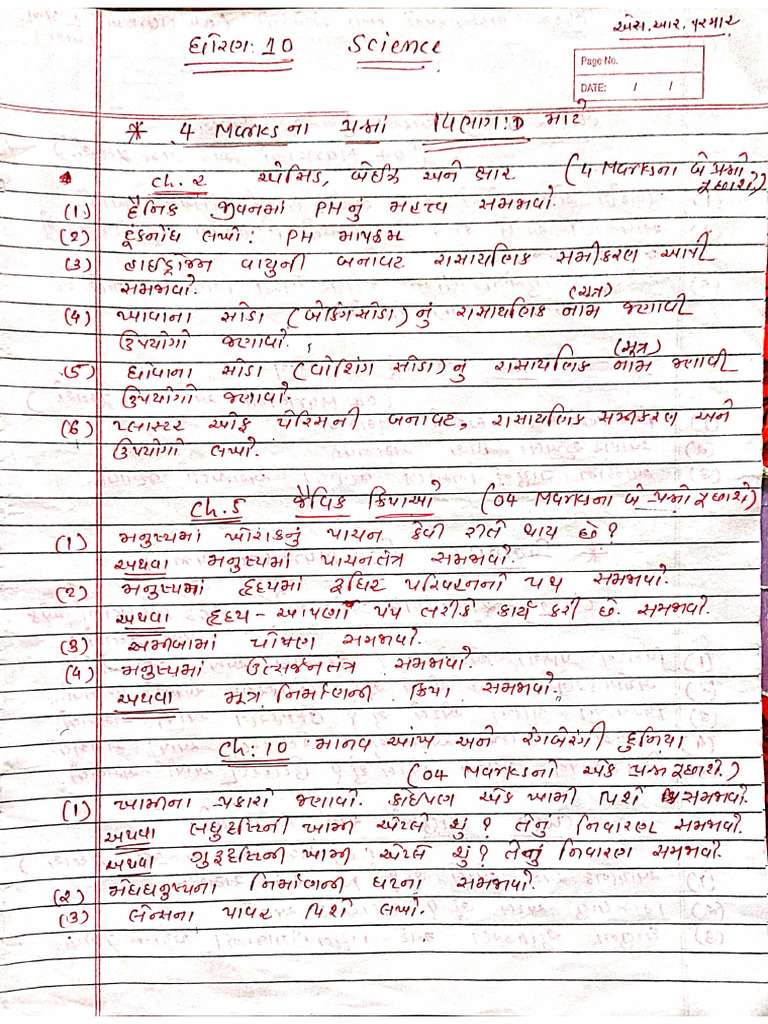 એસ. આર. પરમાર
ધોરણ: 10 Science
Page No.
DATE: / /
* 4 Marksના પ્રશ્નો વિભાગ:D માટે
Ch. 2 એસિડ, બેઈઝ અને ક્ષાર (4 Marksના બે પ્રશ્નો પૂછાશે)
(1) દૈનિક જીવનમાં PHનું મહત્વ સમજાવો.
(2) ટૂંકનોંધ લખો: PH માપક્રમ
(3) હાઈડ્રોજન વાયુની બનાવટ રાસાયણિક સમીકરણ આપી
સમજાવો.
(4) ખાવાના સોડા (બેકિંગસોડા)નું રાસાયણિક નામ (સૂત્ર) જણાવી
ઉપયોગો જણાવો.
(5) ધોવાના સોડા (વોશિંગ સોડા)નું રાસાયણિક નામ (સૂત્ર) જણાવી
ઉપયોગો જણાવો.
(6) પ્લાસ્ટર ઓફ પેરિસની બનાવટ, રાસાયણિક સમીકરણ અને
ઉપયોગો લખો.
Ch. 5 જૈવિક ક્રિયાઓ (04 Marksના બે પ્રશ્નો પૂછાશે)
(1) મનુષ્યમાં ખોરાકનું પાચન કેવી રીતે થાય છે?
અથવા મનુષ્યમાં પાચનતંત્ર સમજાવો.
(2) મનુષ્યમાં હૃદયમાં રુધિર પરિવહનનો પથ સમજાવો.
અથવા હૃદય - આપણો પંપ તરીકે કાર્ય કરી છે. સમજાવો.
(3) અમીબામાં પોષણ સમજાવો.
(4) મનુષ્યમાં ઉત્સર્જનતંત્ર સમજાવો.
અથવા મૂત્ર નિર્માણની ક્રિયા સમજાવો.
Ch: 10 માનવ આંખ અને રંગબેરંગી દુનિયા
(04 Marksનો એક પ્રશ્ન પૂછાશે.)
(1) ખામીના પ્રકારો જણાવો. કોઈપણ એક ખામી વિશે સમજાવો.
અથવા લઘુદૃષ્ટિની ખામી એટલે શું? તેનું નિવારણ સમજાવો.
અથવા ગુરુદૃષ્ટિની ખામી એટલે શું? તેનું નિવારણ સમજાવો.
(2) મેઘધનુષ્યના નિર્માણની ઘટના સમજાવો.
(3) લેન્સના પાવર વિશે લખો.